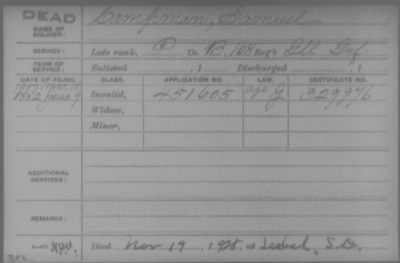 DEAD
NAME OF SOLDIER: Campman, Samuel
SERVICE: Late rank, P Co. B, 108 Reg't Ill. Inf.
TERM OF SERVICE: Enlisted , 1 Discharged , 1
DATE OF FILING. CLASS. APPLICATION NO. LAW. CERTIFICATE NO.
1882 June 9 Invalid, 451605 G 329976
Widow,
Minor,
ADDITIONAL SERVICES:
REMARKS:
Died Nov 19, 1925. at Isabel, S.D.